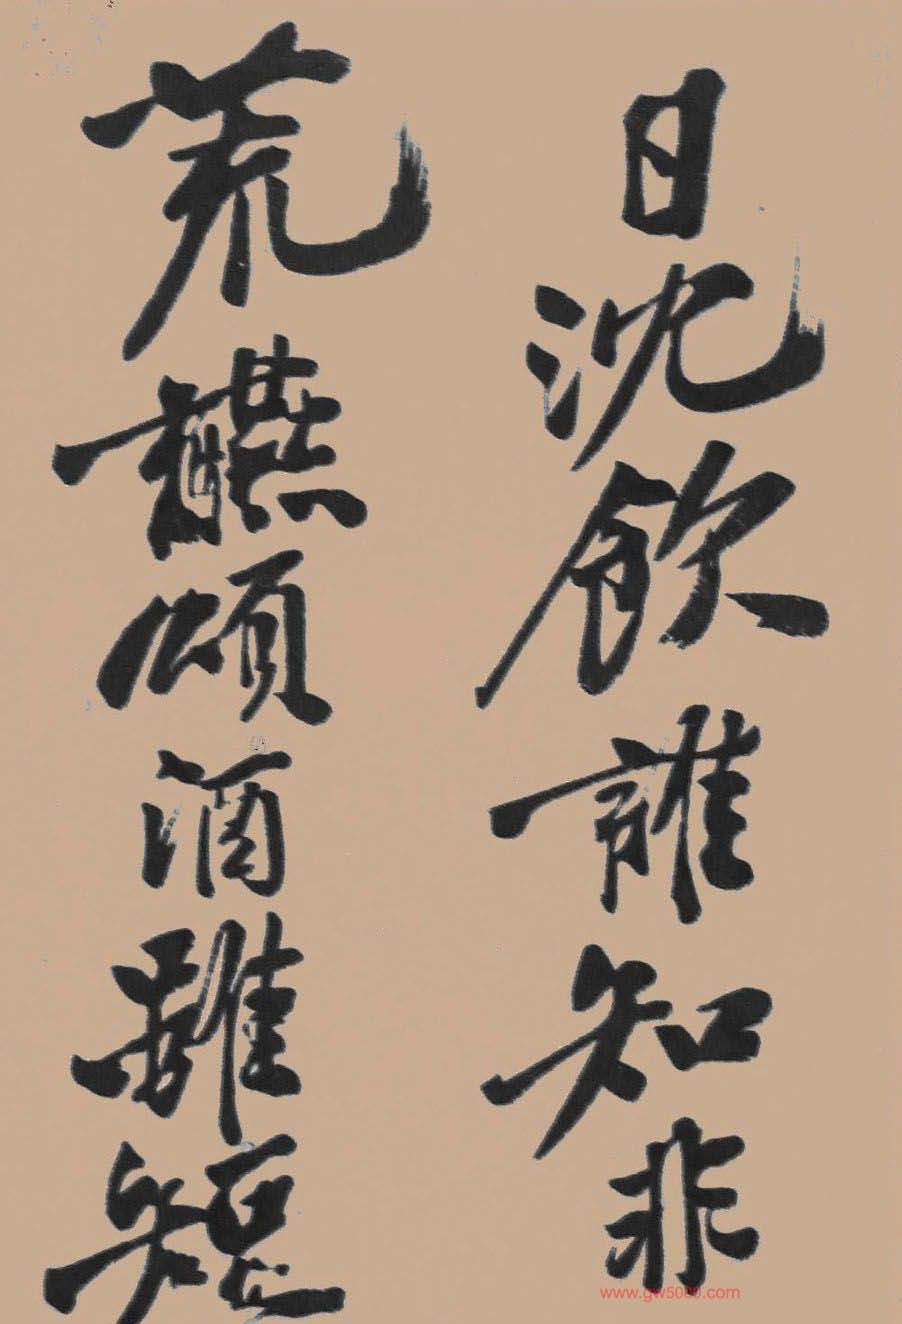 日沈飲誰知非
荒讌頌酒雖短
www.gw5000.com